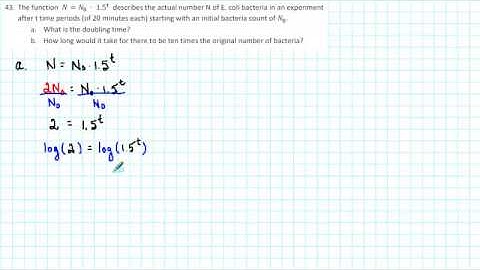 43. The function N = N₀ · 1.5ᵗ describes the actual number N of E. coli bacteria in an experiment
after t time periods (of 20 minutes each) starting with an initial bacteria count of N₀.
a. What is the doubling time?
b. How long would it take for there to be ten times the original number of bacteria?
a. N = N₀ · 1.5ᵗ
2N₀ = N₀ · 1.5ᵗ
N₀ N₀
2 = 1.5ᵗ
log(2) = log(1.5ᵗ)